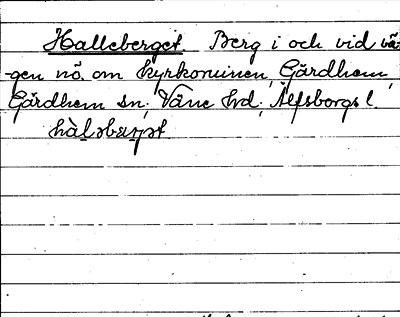 Halleberget. Berg i och vid vä-
gen nö om kyrkoruinen, Gärdhem,
Gärdhem sn, Väne hd, Älfsborgs l.